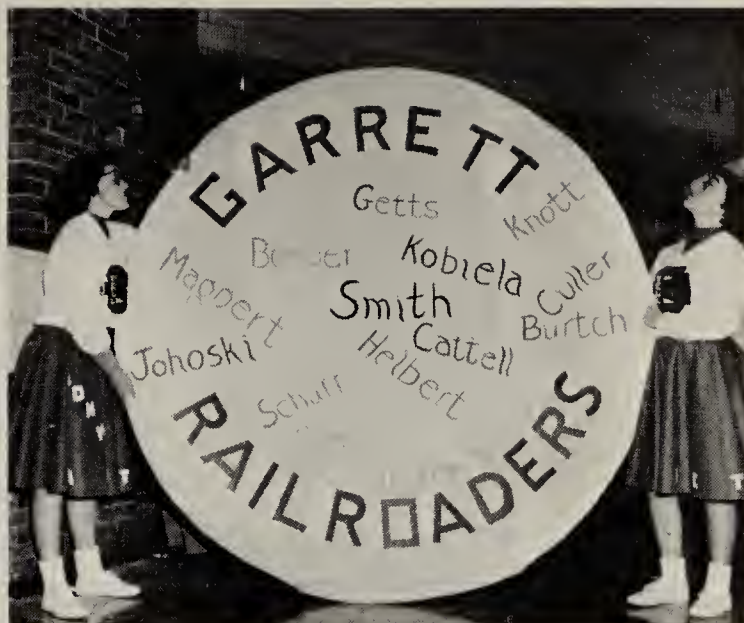 GARRETT
Getts
Knott
Kobiela
Magnert
Culler
Smith
Burtch
Cattell
Johoski
Helbert
Schurr
RAILROADERS